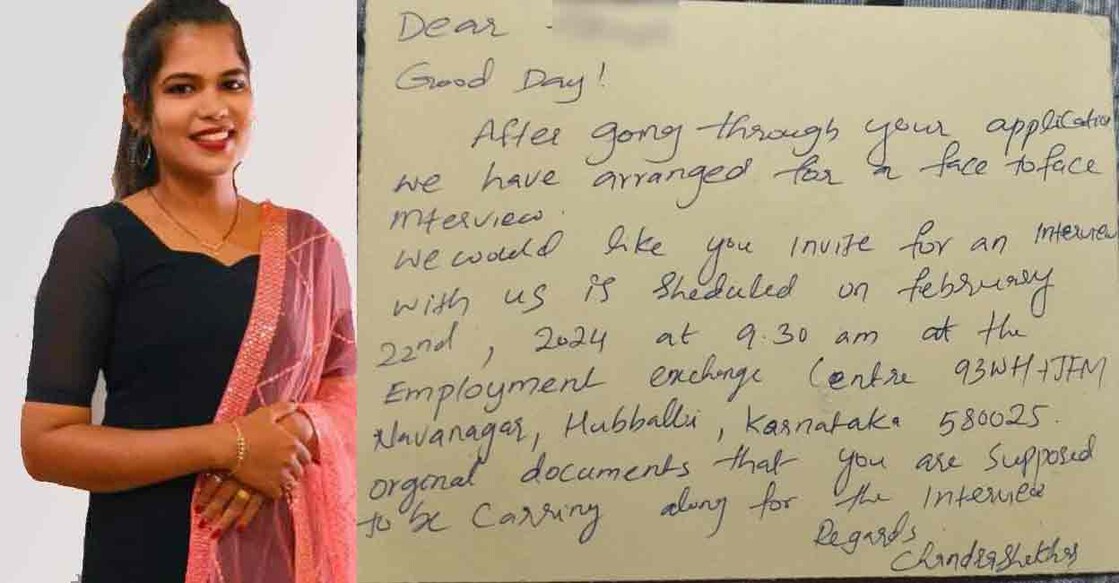 Dear
Good Day!
After going through your application
we have arranged for a face to face
Interview.
we would like you invite for an Interview
with us is Sheduled on february
22nd, 2024 at 9.30 am at the
Employment exchange Centre 93WH+JFM
Navanagar, Hubballi, Karnataka 580025.
orginal documents that you are supposed
to be Carring along for the Interview
Regards
Chandrashekhr